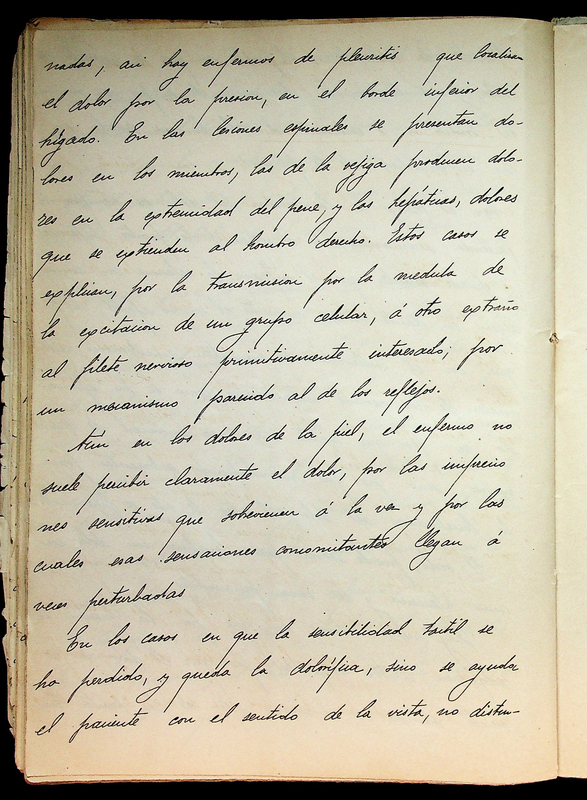 nadas, asi hay enfermos de pleuritis que localizan
el dolor por la presion, en el borde inferior del
hígado. En las lesiones espinales se presentan do-
lores en los miembros, las de la vejiga producen dolo-
res en la extremidad del pene, y las hepáticas, dolores
que se extienden al hombro derecho. Estos casos se
explican, por la transmision por la medula de
la excitacion de un grupo celular, á otro extraño
al filete nervioso primitivamente interesado; por
un mecanismo parecido al de los reflejos.
Aún en los dolores de la piel, el enfermo no
suele percibir claramente el dolor, por las impresio
nes sensitivas que sobrevienen á la vez y por las
cuales esas sensaciones concomitantes llegan á
veces perturbadas
En los casos en que la sensibilidad táctil se
ha perdido, y queda la dolorífica, sino se ayuda
el paciente con el sentido de la vista, no distin-